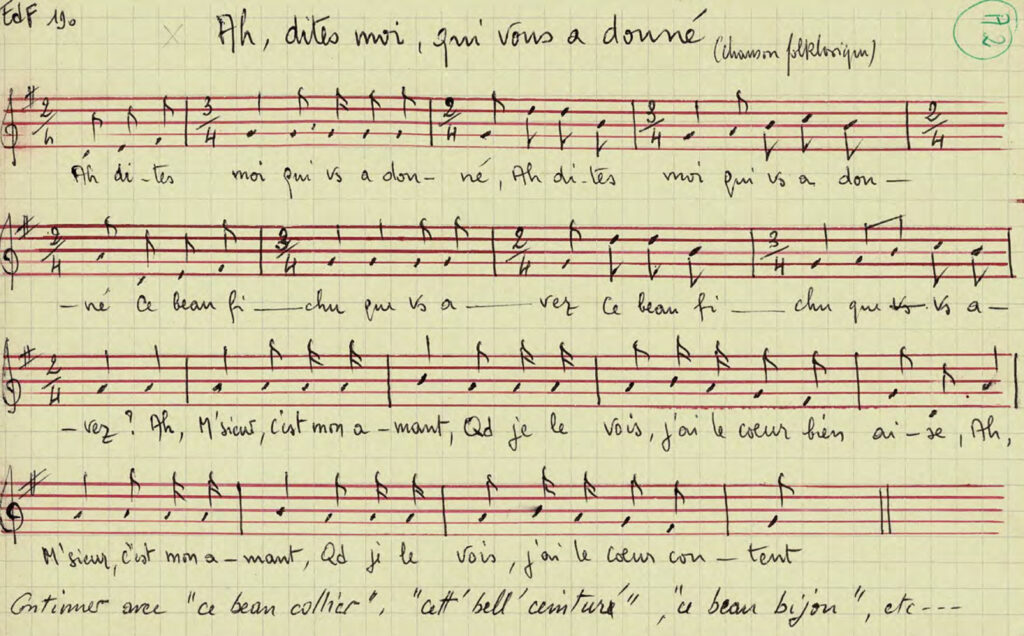 EdF 190
Ah, dites moi, qui vous a donné (chanson folklorique)
P72
2/4 3/4 2/4 3/4 2/4
Ah di-tes moi qui vs a don- né, Ah di-tes moi qui vs a don-
2/4 3/4 2/4 3/4
-né Ce beau fi-chu que vs a-vez Ce beau fi-chu que vs vs a-
2/4
-vez? Ah, M'sieur, c'est mon a-mant, Qd je le vois, j'ai le coeur bien ai-sé, Ah,
M'sieur, c'est mon a-mant, Qd je le vois, j'ai le coeur con-tent
Continuer avec "ce beau collier", "cett' bell' ceinturé", "ce beau bijou", etc---